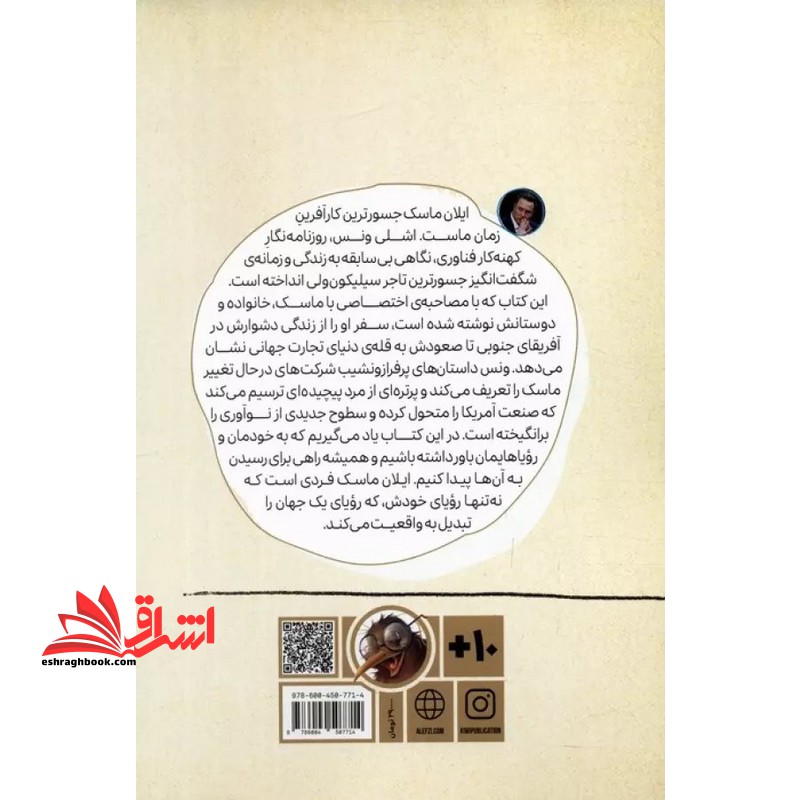 ایلان ماسک جسورترین کارآفرینِ
زمان ماست. اشلی ونس، روزنامه‌نگارِ
کهنه‌کار فناوری، نگاهی بی‌سابقه به زندگی و زمانه‌ی
شگفت‌انگیز جسورترین تاجر سیلیکون‌ولی انداخته است.
این کتاب که با مصاحبه‌ی اختصاصی با ماسک، خانواده و
دوستانش نوشته شده است، سفر او را از زندگی دشوارش در
آفریقای جنوبی تا صعودش به قله‌ی دنیای تجارت جهانی نشان
می‌دهد. ونس داستان‌های پرفرازونشیب شرکت‌های درحال تغییر
ماسک را تعریف می‌کند و پرتره‌ای از مرد پیچیده‌ای ترسیم می‌کند
که صنعت آمریکا را متحول کرده و سطوح جدیدی از نوآوری را
برانگیخته است. در این کتاب یاد می‌گیریم که به خودمان و
رؤیاهایمان باور داشته باشیم و همیشه راهی برای رسیدن
به آن‌ها پیدا کنیم. ایلان ماسک فردی است که
نه‌تنها رؤیای خودش، که رؤیای یک جهان را
تبدیل به واقعیت می‌کند.
اشراق
eshraghbook.com
+۱۰
978-600-450-771-4
9 786004 507714
تومان
ALEFZI.COM